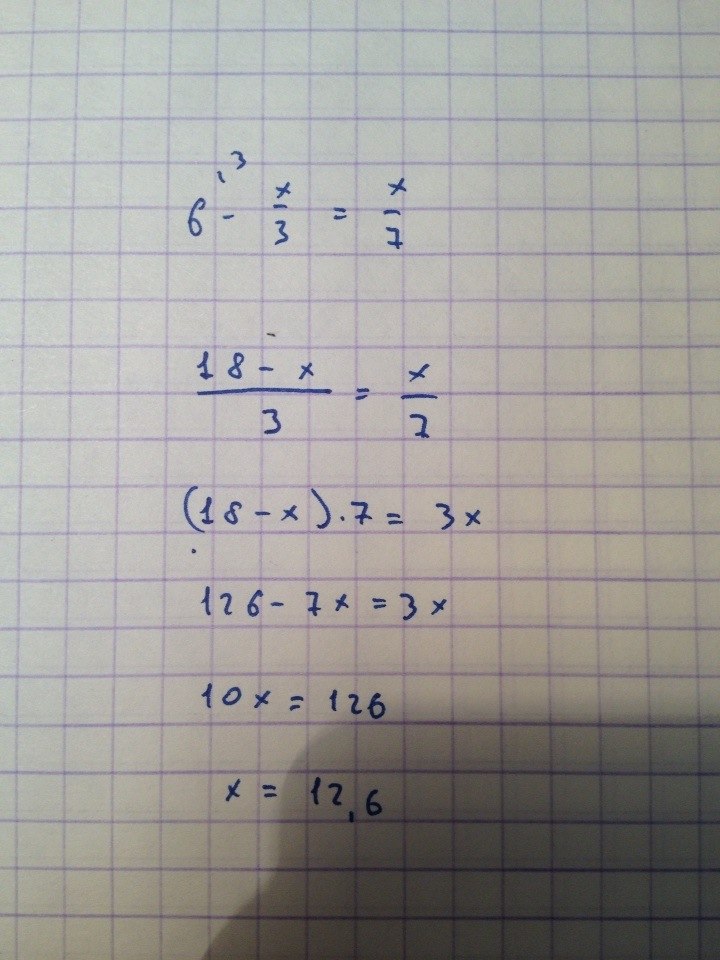 6^{\3} - x/3 = x/7
(18 - x)/3 = x/7
(18 - x) · 7 = 3x
126 - 7x = 3x
10x = 126
x = 12,6